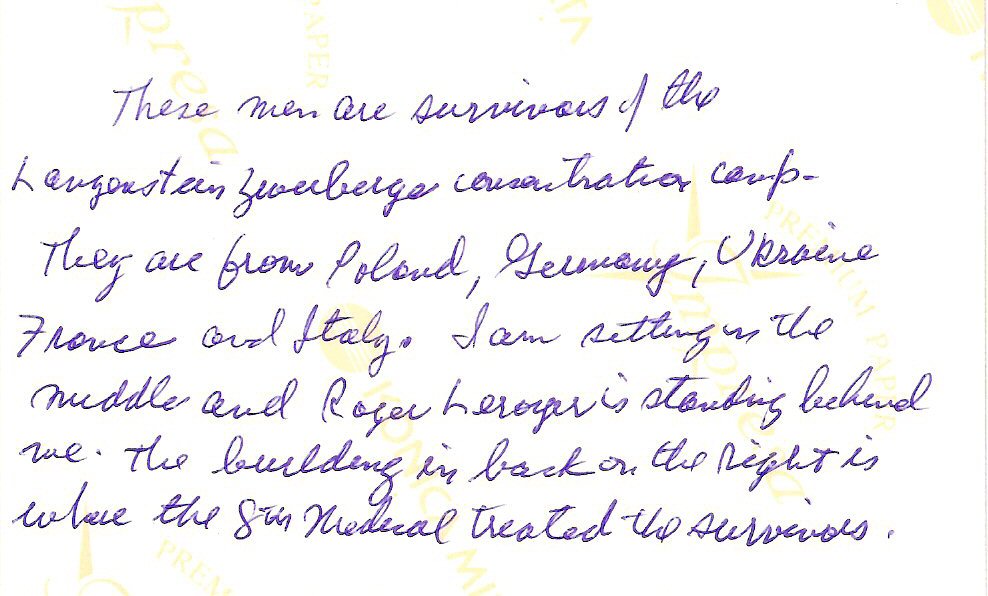 These men are survivors of the
Langenstein Zwieberge concentration camp-
They are from Poland, Germany, Ukraine
France and Italy. I am setting in the
middle and Roger Leroyer is standing behind
me. The building in back on the right is
where the 8th Medical treated the survivors.
PREMIUM PAPER
KONICA MINOLTA